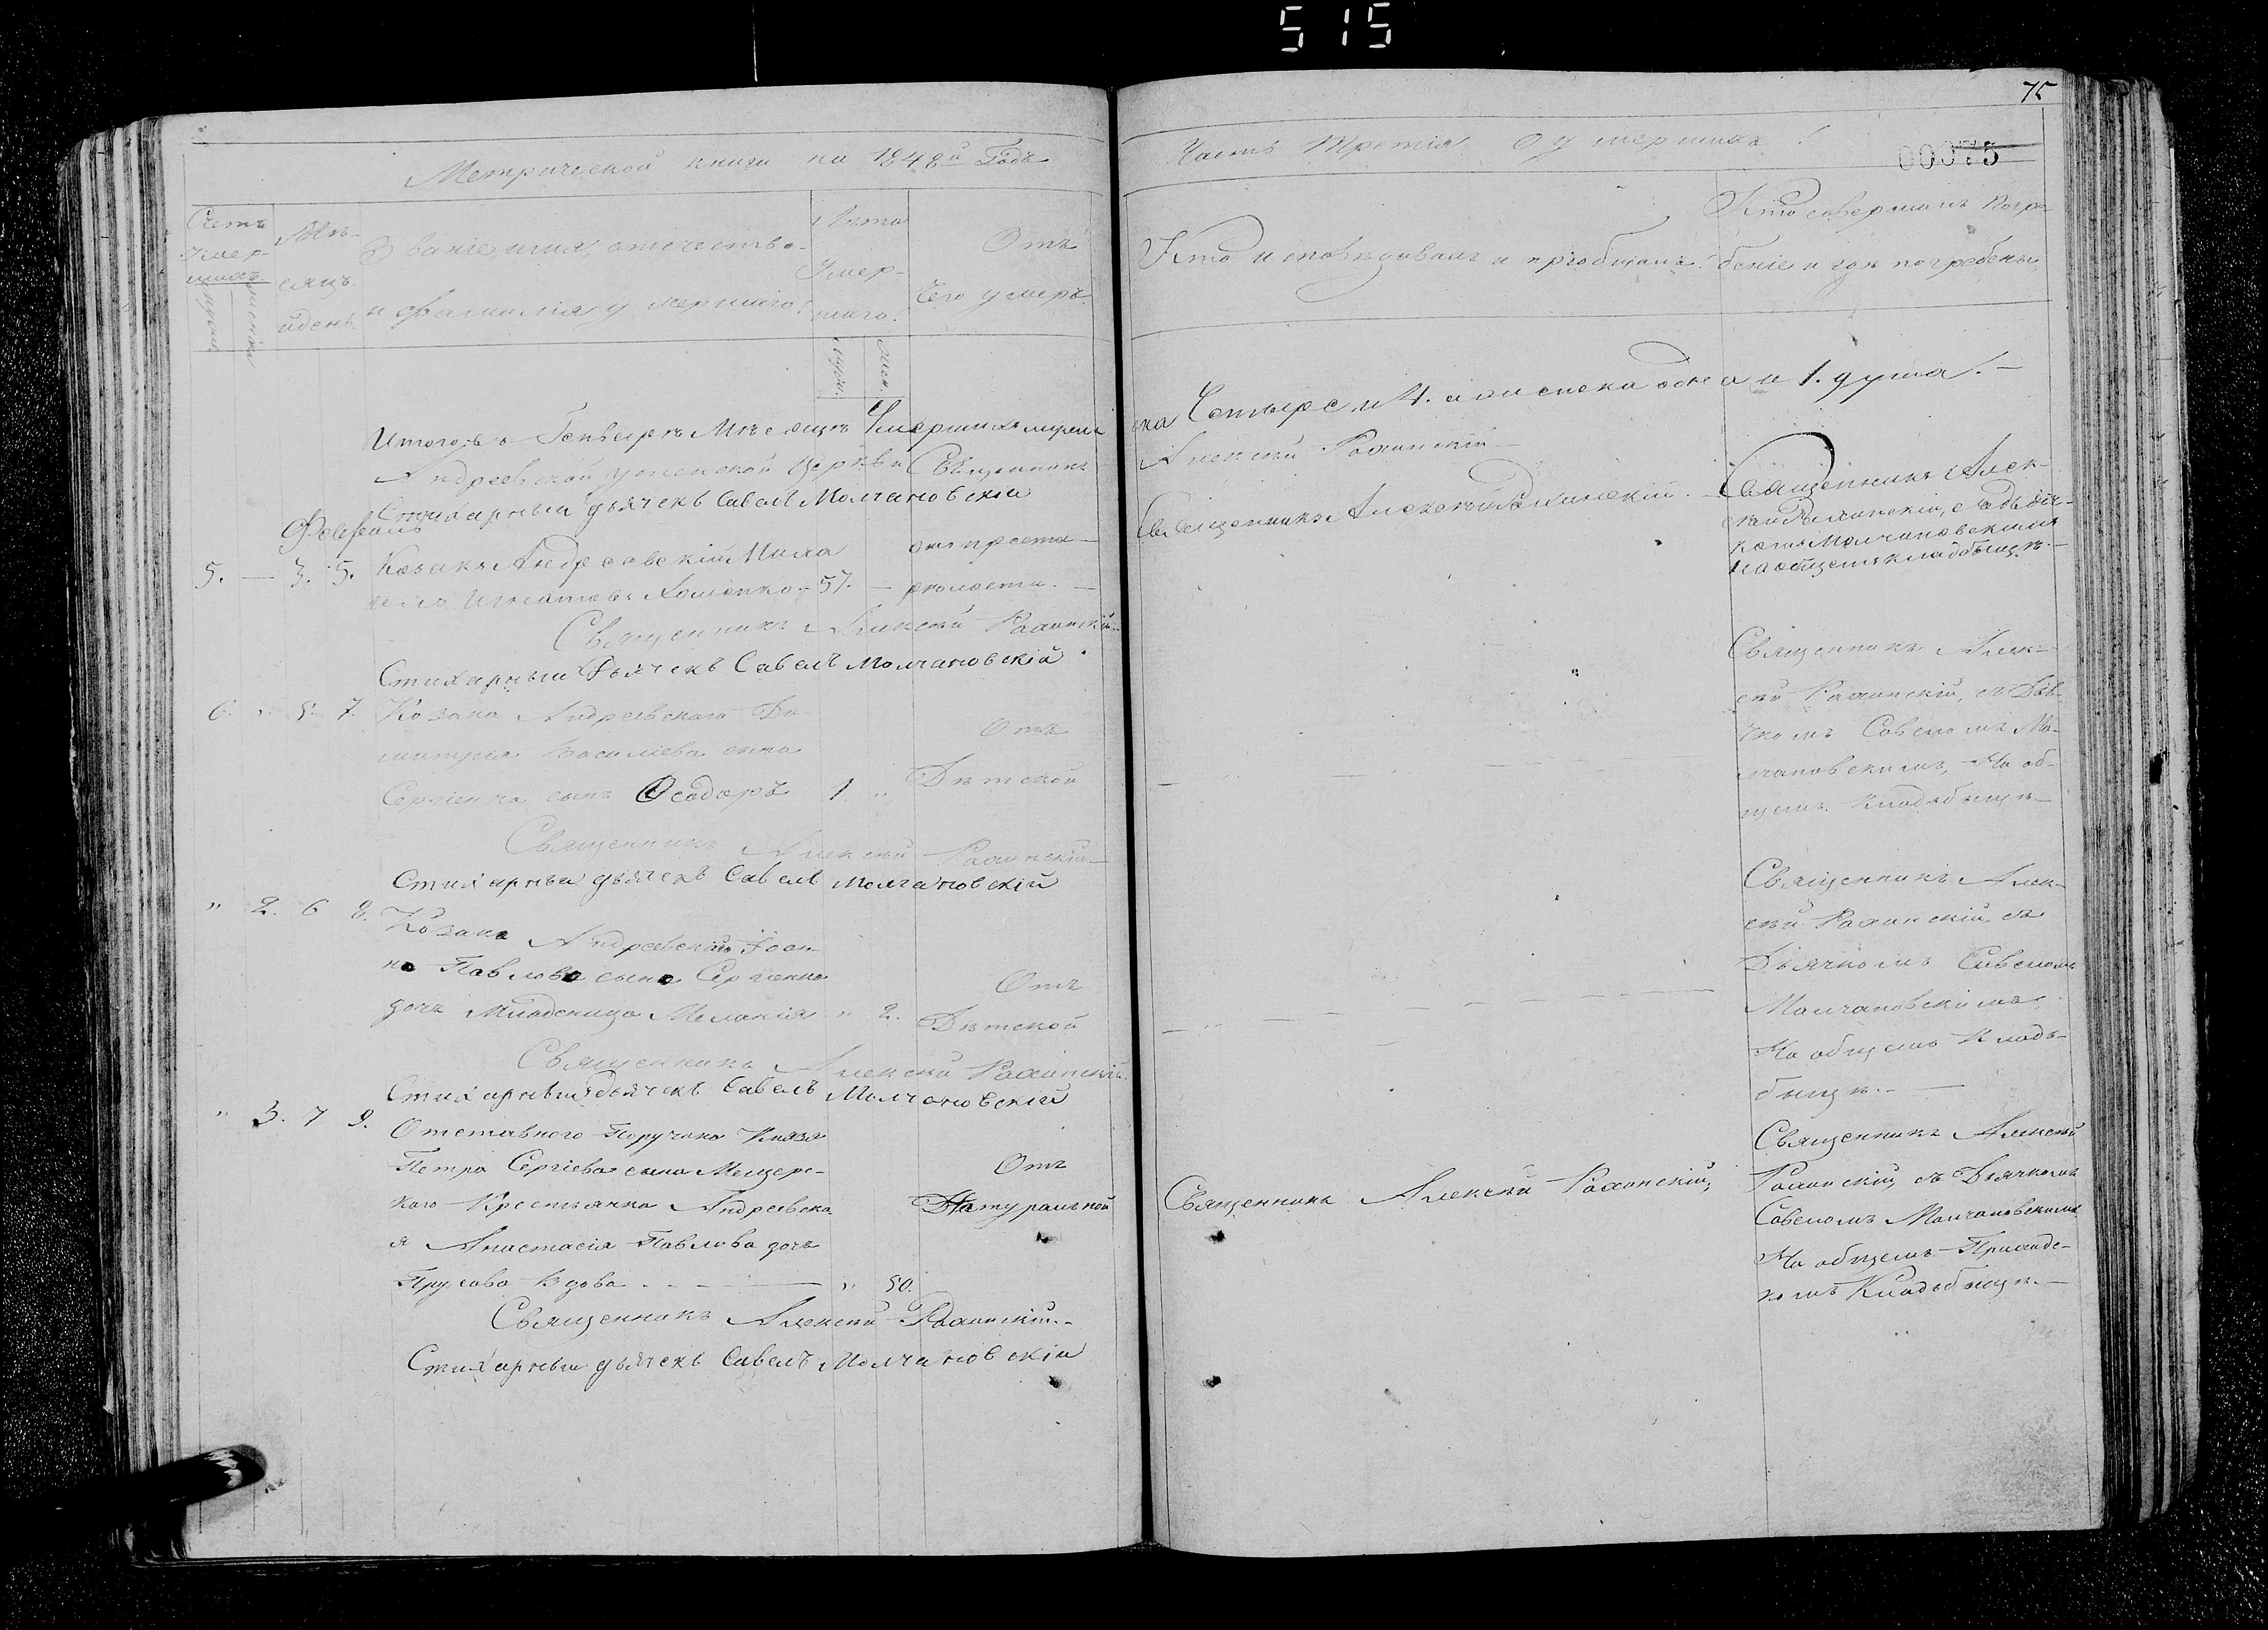 515
75
00075
Метрической книги на 1848й Годъ
Часть Третія О умершихъ!
Счетъ
Умер-
шихъ.
мужск
женска
Мѣ-
сяцъ
и день.
Званіе, имя, отечество,
и фамилія умершаго!
Лѣта
Умер-
шаго!
Муж.
Жен.
Отъ
Чего умеръ.
Кто исповѣдывалъ и пріобщалъ!
Кто совершалъ Погре-
беніе и гдѣ погребены,
Итого въ Генварѣ Мѣсяцѣ Умершихъ мужеска Четыре и 4. а женска одна и 1. душа.—
Андреевской церкви Священникъ Алексій
Стихарный дьячекъ Савелъ Молчановскій
Февраль
5. — 3. 5. Козакъ Андреевскій Миха
илъ Игнатовъ Хоменко — 57. —
отъ проста-
рѣлости. —
Священникъ Алексій
Священникъ Алек-
сѣй съ дьяч-
комъ Молчановскимъ
на общемъ кладбищѣ.—
Священникъ Алексій
Стихарный Дьячекъ Савелъ Молчановскій
6. " 5. 7. Козака Андреевского Ди-
митрія Василіева сына
Сергіенка сынъ Ѳеодоръ 1 "
Отъ
Дѣтской
Священникъ Алек-
сѣй съ Дья-
чкомъ Савеломъ Мо-
лчановскимъ, На об-
щемъ Кладбищѣ—
Священникъ Алексій
Стихарный дьячекъ Савелъ Молчановскій
" 2. 6 8. Козака Андреевскаго Іоан-
на Павлова сына Сергіенка
дочь Младеница Меланія " 2.
Отъ
Дѣтской
Священникъ Алек-
сѣй съ
Дьячкомъ Савеломъ
Молчановскимъ
На общемъ Клад-
бищѣ.—
Священникъ Алексѣй
Стихарный дьячекъ Савелъ Молчановскій
" 3. 7 9. Отставного Поручика Князя
Петра Сергіева сына Мещерс-
кого Крестьянка Андреевска
я Анастасія Павлова дочь
Вдова — " 50.
Отъ
Натуральной
Священникъ Алексѣй
Священникъ Алексѣй
съ Дьячкомъ
Савеломъ Молчановскимъ
На общемъ Приходс-
комъ Кладбищѣ.—
Священникъ Алексѣй
Стихарный дьячекъ Савелъ Молчановскій